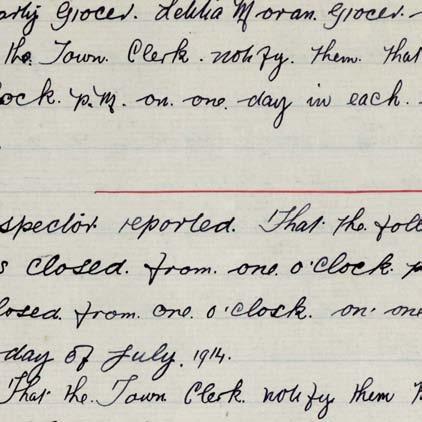 Grocer. Delilia Moran. Grocer.
the. Town. Clerk. notify. them. that
ock. p.m. on. one. day in each.
spector. reported. That. the. foll
s closed. from. one. o'clock. p
losed. from. one. o'clock. on. one
day of July. 1914.
That the. Town Clerk. notify them